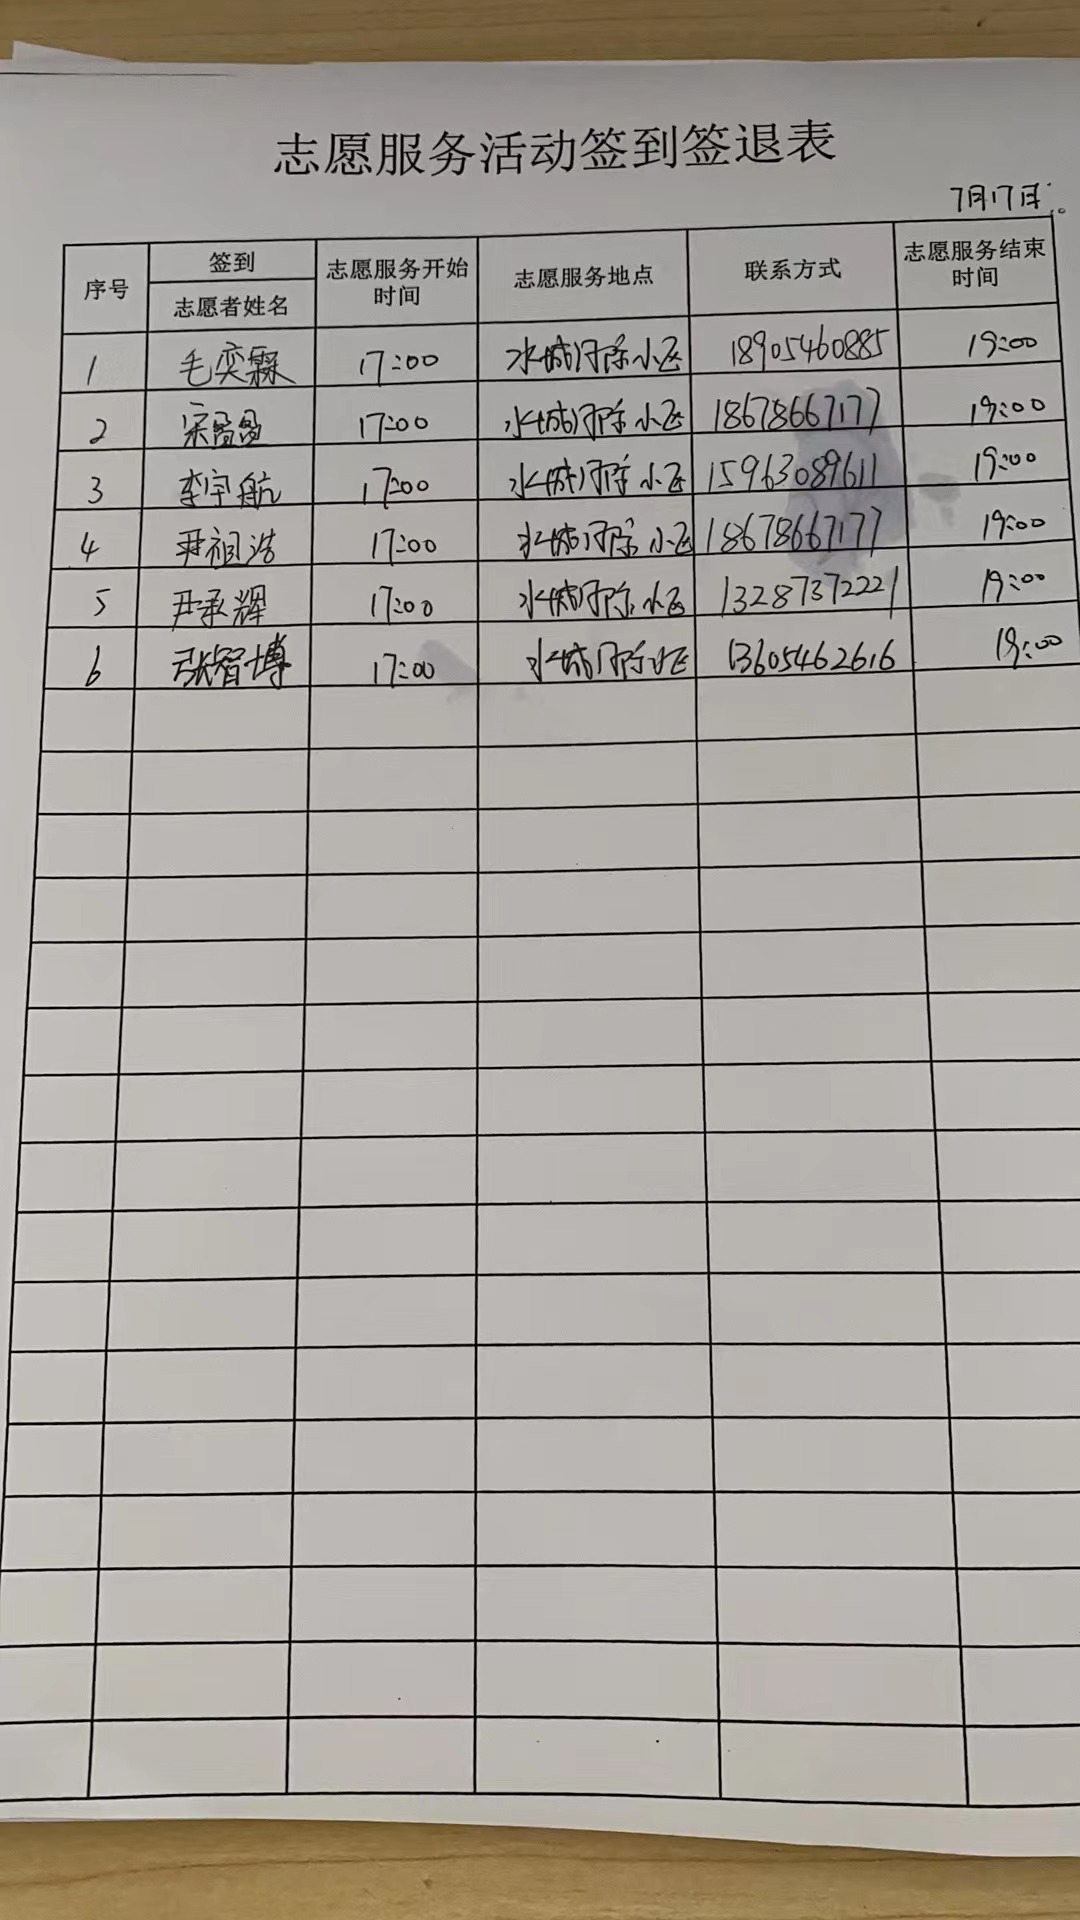 志愿服务活动签到签退表
7月17日
序号 签到 志愿者姓名 志愿服务开始时间 志愿服务地点 联系方式 志愿服务结束时间
1 毛奕霖 17:00 水城 小区 18905460885 19:00
2 宋 17:00 水城 小区 18678667177 19:00
3 李宇航 17:00 水城 小区 15963089611 19:00
4 尹祖浩 17:00 水城 小区 18678667177 19:00
5 尹承辉 17:00 水城 小区 13287372221 19:00
6 张智博 17:00 水城 小区 13605462616 19:00